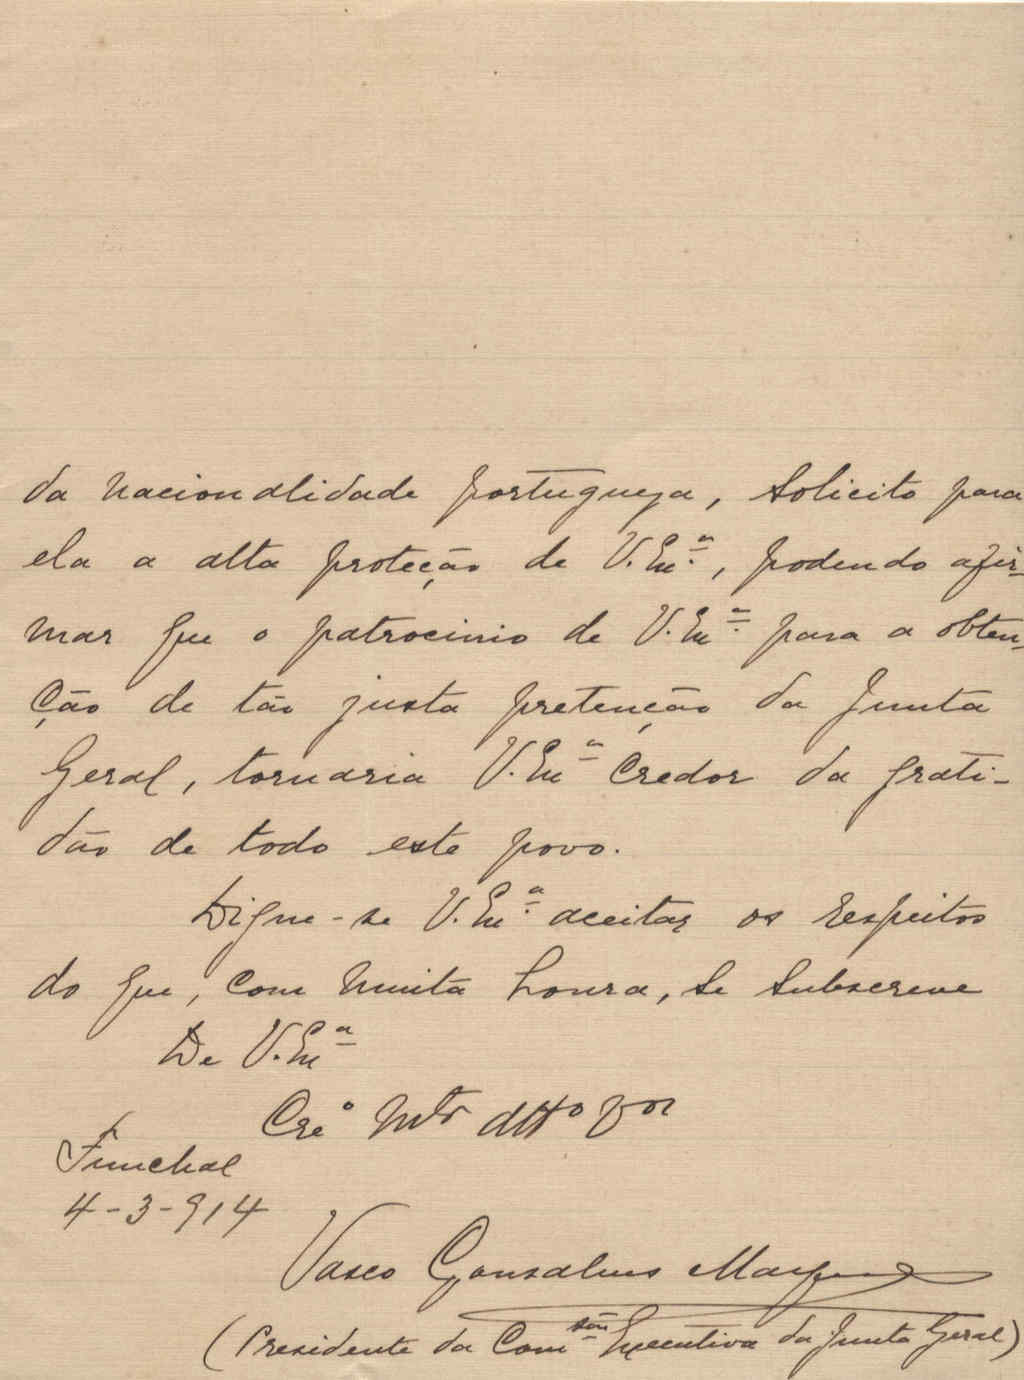 da nacionalidade portugueza, solicito para
ela a alta proteção de V. Exª., podendo afir-
mar que o patrocinio de V. Exª. para a obten-
ção de tão justa pretenção da Junta
Geral, tornaria V. Exª credor da grati-
dão de todo este povo.
Digne-se V. Exª. aceitar os respeitos
do que, com muita honra, se subscreve
De V. Exª
Creº Mto attº vor
Funchal
4-3-914
Vasco Gonsalves Marques
(Presidente da Comsão Executiva da Junta Geral)